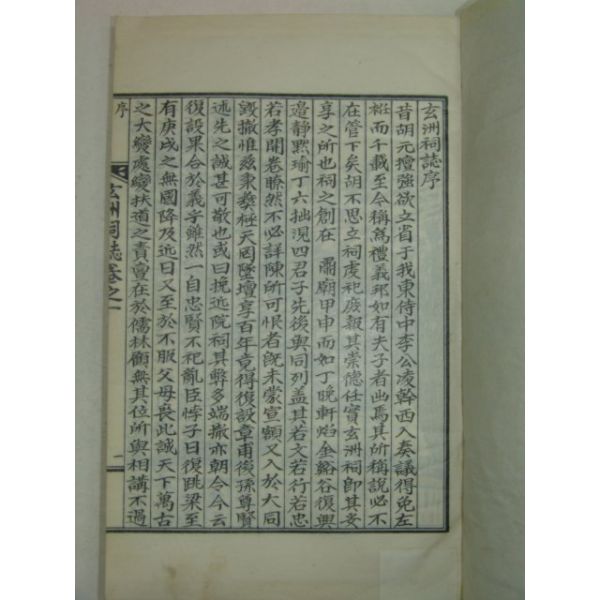 玄洲祠誌序
昔胡元擅強欲立省于我東侍中李公凌幹西入奏議得免左
袵而千載至今稱爲禮義邦如有夫子者出焉其所稱說必不
在管下矣胡不思立祠虔祀庶報其崇德任實玄洲祠卽其妥
享之所也祠之創在 肅廟甲申而如丁晩軒焰金谿谷復興
邉靜黙瑜丁六拙沉四君子先後與同列盖其若文若行若忠
若孝開卷瞭然不必詳陳所可恨者旣未蒙宣額又入於大同
毀撤惟玆秉彛極天罔墜壇享百年竟得復設章甫後孫尊賢
述先之誠甚可敬也或曰挽近院祠其弊多端撤亦朝令今云
復設果合於義乎雖然一自忠賢不祀亂臣悖子日復跳梁至
有庚戌之無國降及近日又至於不服父母喪此誠天下萬古
之大變處變扶道之責亶在於儒林顧無其位所與相講不過
序
玄洲祠誌卷之一
一